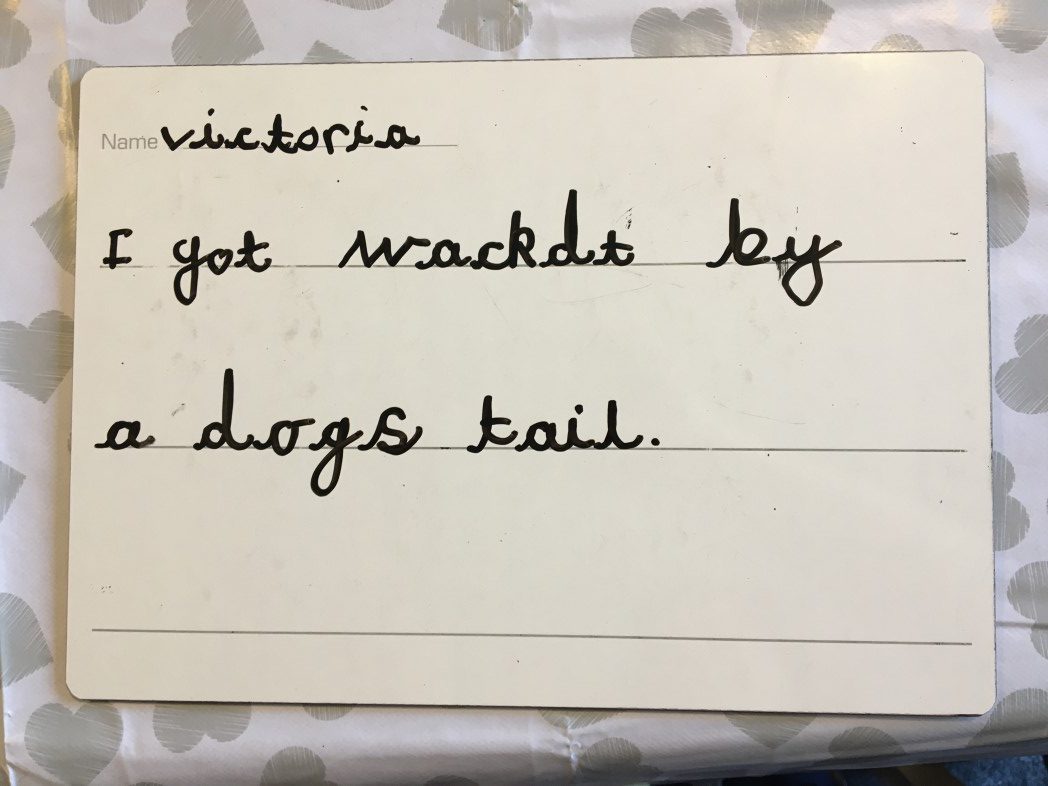 Name victoria
I got wackdt by
a dogs tail.